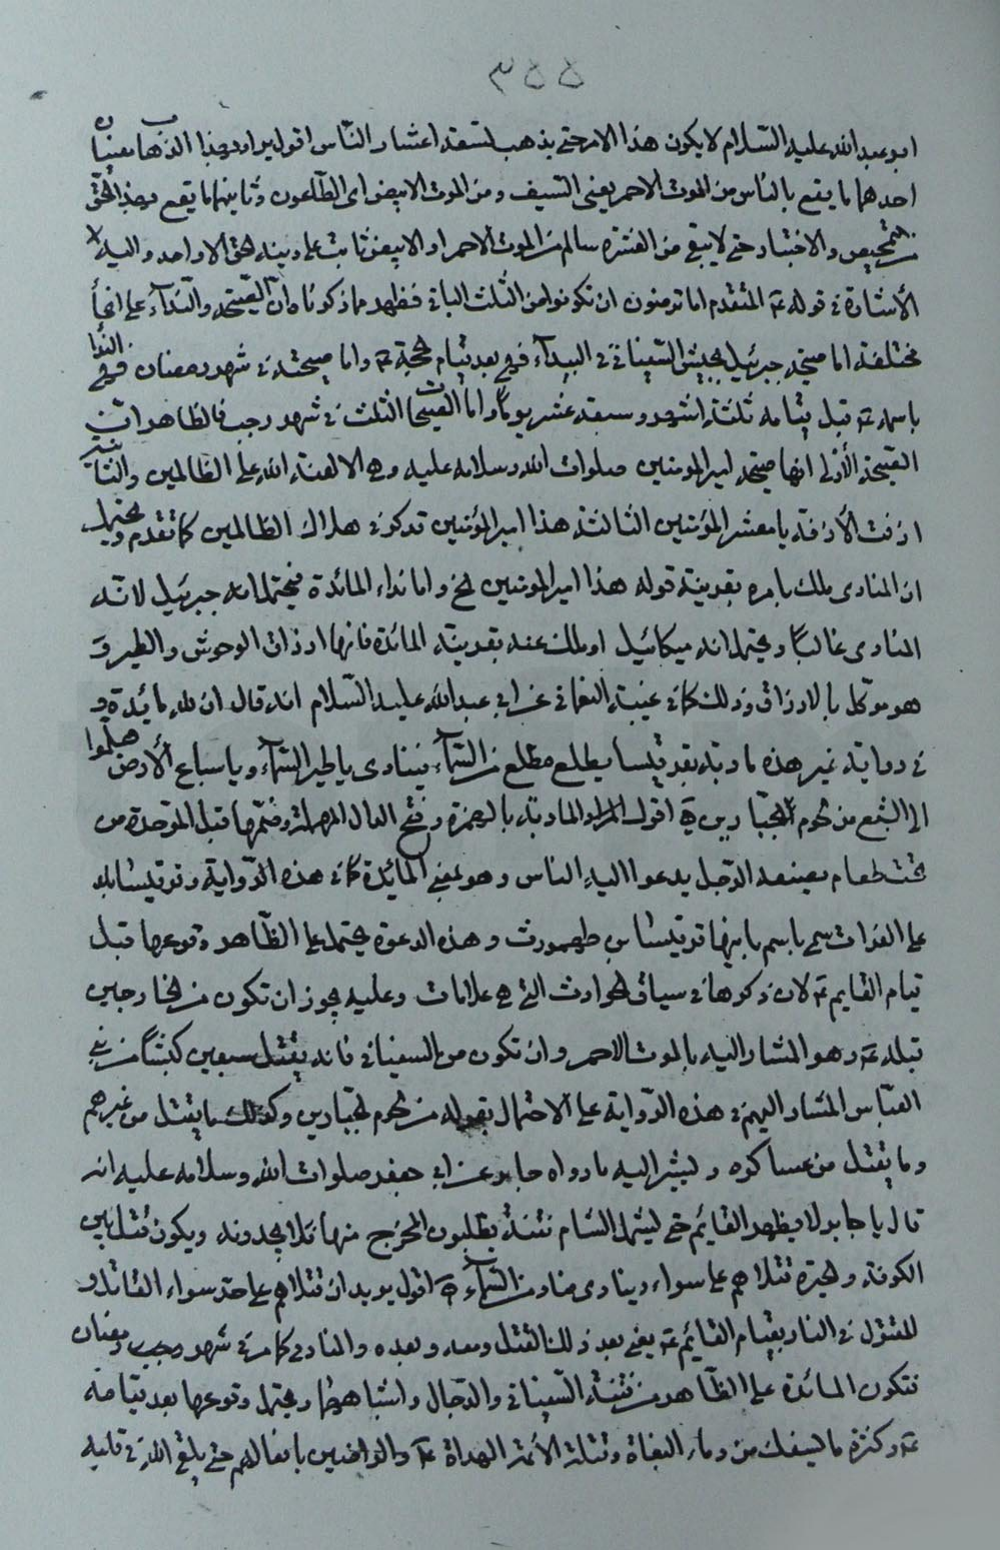 ٣٥٥
ابو عبد الله عليه السلام لا يكون هذا الامر حتى يذهب تسعة اعشار الناس اقول يراد بهذا الذهاب معنيان
احدهما ما يقع بالناس من الموت الاحمر يعنى السيف و من الموت الابيض اى الطاعون وثانيهما ما يقع بهذا الخلق
من التمحيص والاختبار حتى لا يبقى من العشرة سالم من الموت الاحمر او الابيض ثابت على دينه الحق الا واحد واليه
الاشارة فى قوله ع المتقدم اما ترضون ان تكونوا من الثلث الباقى فظهر مما ذكرنا ان الصيحة والنداء على انحاء
مختلفة اما صيحة جبرئيل بجيش السفيانى فى البيداء فهى بعد قيام الحجة ع واما صيحته فى شهر رمضان فهى النداء
باسمه ع قبل قيامه ثلثة اشهر وسبعة عشر يوما واما الصيحات الثلث فى شهر رجب فالظاهر ان
الصيحة الاولى انها صيحة امير المؤمنين صلوات الله وسلامه عليه وهى الا لعنة الله على الظالمين والثانية
ازفت الازفة يا معشر المؤمنين الثالثة هذا امير المؤمنين قد كر فى هلاك الظالمين كما تقدم ويحتمل
ان المنادى ملك بامره بقرينة قوله هذا امير المؤمنين الخ واما نداء المائدة فيحتمل انه جبرئيل لانه
المنادى غالبا ويحتمل انه ميكائيل او ملك عنه بقرينة المائدة فانها ارزاق الوحوش والطير و
هو موكل بالارزاق وذلك كما فى غيبة النعمانى عن ابى عبد الله عليه السلام انه قال ان لله مائدة و
فى رواية غير هذه مادبة بقرقيسا يطلع مطلع من السماء فينادى يا طير السماء ويا سباع الارض هلموا
الى الشبع من لحوم الجبارين اقول المراد المادبة بالهمزة وفتح الدال المهملة وضمها قبل الموحدة من
تحت طعام يصنعه الرجل يدعوا اليه الناس وهو بمعنى المائدة كما فى هذه الرواية وقرقيسا بلد
على الفرات سمى باسم بانيها قرقيسا بن طهمورث وهذه الدعوة يحتمل على الظاهر وقوعها قبل
قيام القايم ع لان ذكرها فى سياق الحوادث التى هى علامات وعليه يجوز ان تكون من الخارجين
قبله ع وهو المشار اليه بالموت الاحمر وان تكون من السفيانى فانه يقتل سبعين كبشا من بنى
العباس المشار اليهم فى هذه الرواية على الاحتمال بقوله من لحوم الجبارين وكذلك ما يقتل من غيرهم
وما يقتل من عساكره ويشير اليه ما رواه جابر عن ابى جعفر صلوات الله وسلامه عليه انه
قال يا جابر لا يظهر القايم حتى يشمل الشام فتنة يطلبون المخرج منها فلا يجدونه ويكون قتل بين
الكوفة والحيرة قتلاهم على سواء وينادى مناد من السماء اقول يريد ان قتلاهم على حد سواء القاتل و
المقتول فى النار بقيام القايم ع يعنى بعد ذلك القتل ومعه وبعده والمنادى كما مر فى شهر رجب ورمضان
فتكون المائدة على الظاهر من فتنة السفيانى والدجال واشباههما ويحتمل وقوعها بعد قيامه
ع وكثرة ما يسفك من دماء البغاة وقتلة الائمة الهداة ع والراضين بافعالهم حتى يلقى الله فى قلبه